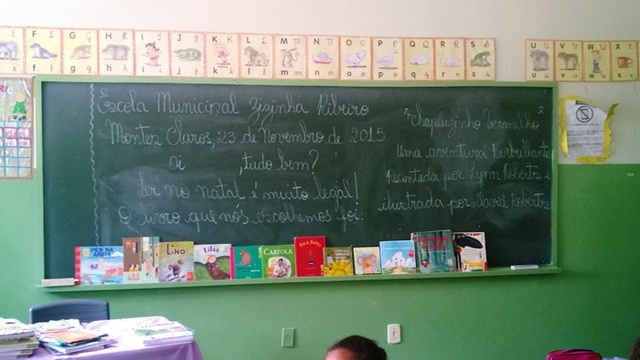 F f
G g
H h
I i
J j
K k
L l
M m
N n
O o
P p
Q q
R r
S s
U u
V v
W w
X x
Escola Municipal Zizinha Ribeiro
Montes Claros, 23 de Novembro de 2015
oi , tudo bem?
Ler no natal é muito legal!
O livro que nós escolhemos foi:
"Chapeuzinho Vermelho"
Uma aventura Borbulhante
Recontada por Lynn Roberts e
ilustrada por David Roberts
LINO
CARTOLA